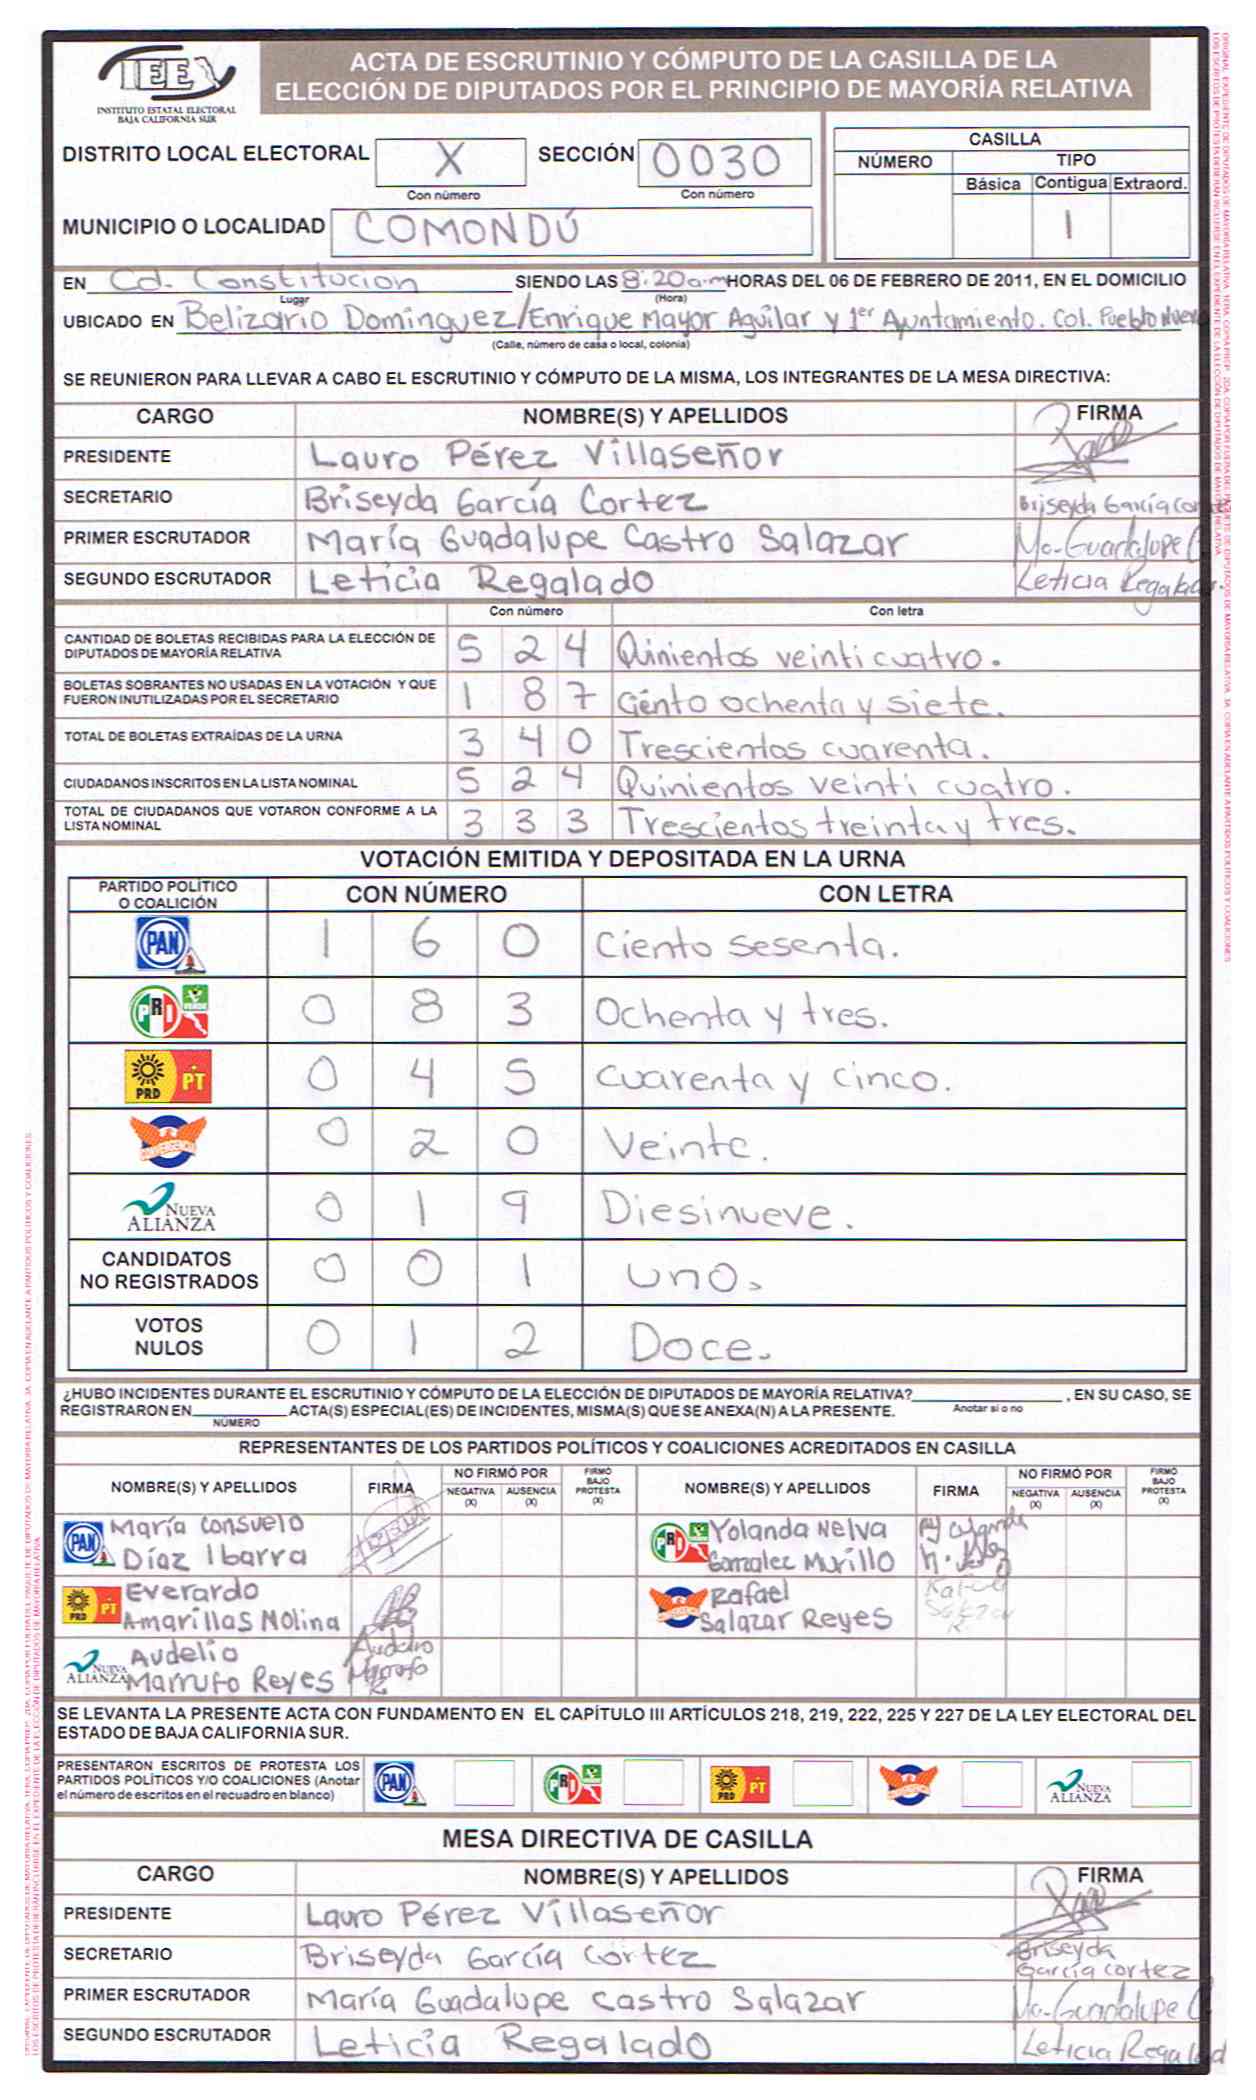 IEE
INSTITUTO ESTATAL ELECTORAL
BAJA CALIFORNIA SUR
ACTA DE ESCRUTINIO Y CÓMPUTO DE LA CASILLA DE LA
ELECCIÓN DE DIPUTADOS POR EL PRINCIPIO DE MAYORÍA RELATIVA
DISTRITO LOCAL ELECTORAL X SECCIÓN 0030
Con número Con número
MUNICIPIO O LOCALIDAD COMONDÚ
CASILLA
NÚMERO TIPO
Básica Contigua Extraord.
1
EN Cd. Constitucion SIENDO LAS 8:20a.m HORAS DEL 06 DE FEBRERO DE 2011, EN EL DOMICILIO
Lugar (Hora)
UBICADO EN Belizario Dominguez/Enrique Mayor Aguilar y 1er Ayuntamiento. Col. Pueblo Nuevo
(Calle, número de casa o local, colonia)
SE REUNIERON PARA LLEVAR A CABO EL ESCRUTINIO Y CÓMPUTO DE LA MISMA, LOS INTEGRANTES DE LA MESA DIRECTIVA:
CARGO NOMBRE(S) Y APELLIDOS FIRMA
PRESIDENTE Lauro Pérez Villaseñor
SECRETARIO Briseyda García Cortez Briseyda García Cortez
PRIMER ESCRUTADOR María Guadalupe Castro Salazar Ma. Guadalupe C
SEGUNDO ESCRUTADOR Leticia Regalado Leticia Regalado.
Con número Con letra
CANTIDAD DE BOLETAS RECIBIDAS PARA LA ELECCIÓN DE
DIPUTADOS DE MAYORÍA RELATIVA 5 2 4 Quinientos veinti cuatro.
BOLETAS SOBRANTES NO USADAS EN LA VOTACIÓN Y QUE
FUERON INUTILIZADAS POR EL SECRETARIO 1 8 7 Ciento ochenta y siete.
TOTAL DE BOLETAS EXTRAÍDAS DE LA URNA 3 4 0 Trescientos cuarenta.
CIUDADANOS INSCRITOS EN LA LISTA NOMINAL 5 2 4 Quinientos veinti cuatro.
TOTAL DE CIUDADANOS QUE VOTARON CONFORME A LA
LISTA NOMINAL 3 3 3 Trescientos treinta y tres.
VOTACIÓN EMITIDA Y DEPOSITADA EN LA URNA
PARTIDO POLÍTICO
O COALICIÓN CON NÚMERO CON LETRA
PAN 1 6 0 Ciento sesenta.
PRI VERDE 0 8 3 Ochenta y tres.
PRD PT 0 4 5 Cuarenta y cinco.
CONVERGENCIA 0 2 0 Veinte.
NUEVA ALIANZA 0 1 9 Diesinueve.
CANDIDATOS
NO REGISTRADOS 0 0 1 uno.
VOTOS
NULOS 0 1 2 Doce.
¿HUBO INCIDENTES DURANTE EL ESCRUTINIO Y CÓMPUTO DE LA ELECCIÓN DE DIPUTADOS DE MAYORÍA RELATIVA? , EN SU CASO, SE
Anotar si o no
REGISTRARON EN ACTA(S) ESPECIAL(ES) DE INCIDENTES, MISMA(S) QUE SE ANEXA(N) A LA PRESENTE.
NÚMERO
REPRESENTANTES DE LOS PARTIDOS POLÍTICOS Y COALICIONES ACREDITADOS EN CASILLA
NOMBRE(S) Y APELLIDOS FIRMA NO FIRMÓ POR NEGATIVA (X) AUSENCIA (X) FIRMÓ BAJO PROTESTA (X) NOMBRE(S) Y APELLIDOS FIRMA NO FIRMÓ POR NEGATIVA (X) AUSENCIA (X) FIRMÓ BAJO PROTESTA (X)
PAN María Consuelo
Díaz Ibarra
PRI Yolanda Nelva
Gonzalez Murillo
PRD PT Everardo
Amarillas Molina
CONVERGENCIA Rafael
Salazar Reyes
Rafael
Salazar
R.
NUEVA ALIANZA Audelio
Marrufo Reyes
Audelio
Marrufo
R
SE LEVANTA LA PRESENTE ACTA CON FUNDAMENTO EN EL CAPÍTULO III ARTÍCULOS 218, 219, 222, 225 Y 227 DE LA LEY ELECTORAL DEL
ESTADO DE BAJA CALIFORNIA SUR.
PRESENTARON ESCRITOS DE PROTESTA LOS
PARTIDOS POLÍTICOS Y/O COALICIONES (Anotar
el número de escritos en el recuadro en blanco)
PAN PRI PRD PT CONVERGENCIA NUEVA ALIANZA
MESA DIRECTIVA DE CASILLA
CARGO NOMBRE(S) Y APELLIDOS FIRMA
PRESIDENTE Lauro Pérez Villaseñor
SECRETARIO Briseyda García Cortez Briseyda
García Cortez
PRIMER ESCRUTADOR María Guadalupe Castro Salazar Ma. Guadalupe C
SEGUNDO ESCRUTADOR Leticia Regalado Leticia Regalad